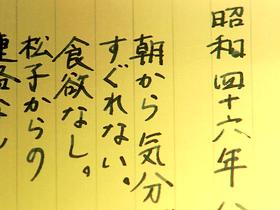 昭和四十六年
朝から気分
すぐれない。
食欲なし。
松子からの
連絡なし